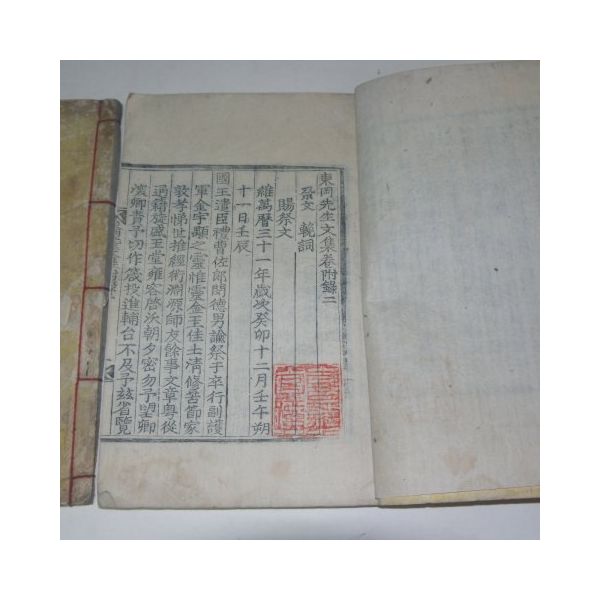 東岡先生文集卷附錄二
祭文 輓詞
賜祭文
維萬曆三十一年歲次癸卯十二月壬午朔
十一日壬辰
國王遣臣禮曹佐郎閔德男諭祭于卒行副護
軍金宇顒之靈惟靈金玉佳士淸修苦節家
敦孝悌世推經術淵源師友餘事文章粤從
通籍旋盛玉堂雍容啓沃朝夕密勿予望卿
爗卿責予切作箴投進輔台不及予玆省覽